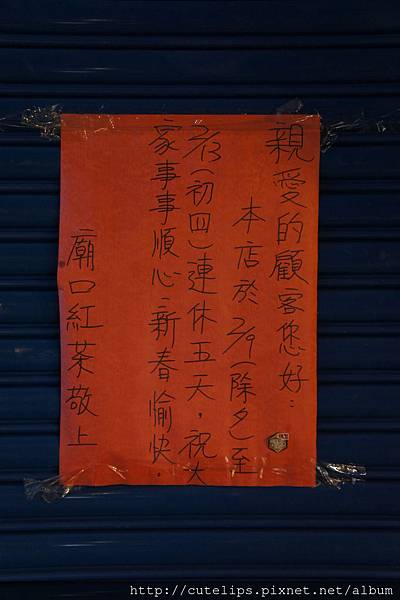 親愛的顧客您好：
本店於2/9(除夕)至
2/13(初四)連休五天，祝大
家事事順心，新春愉快.
廟口紅茶敬上
http://cutelips.pixnet.net/album